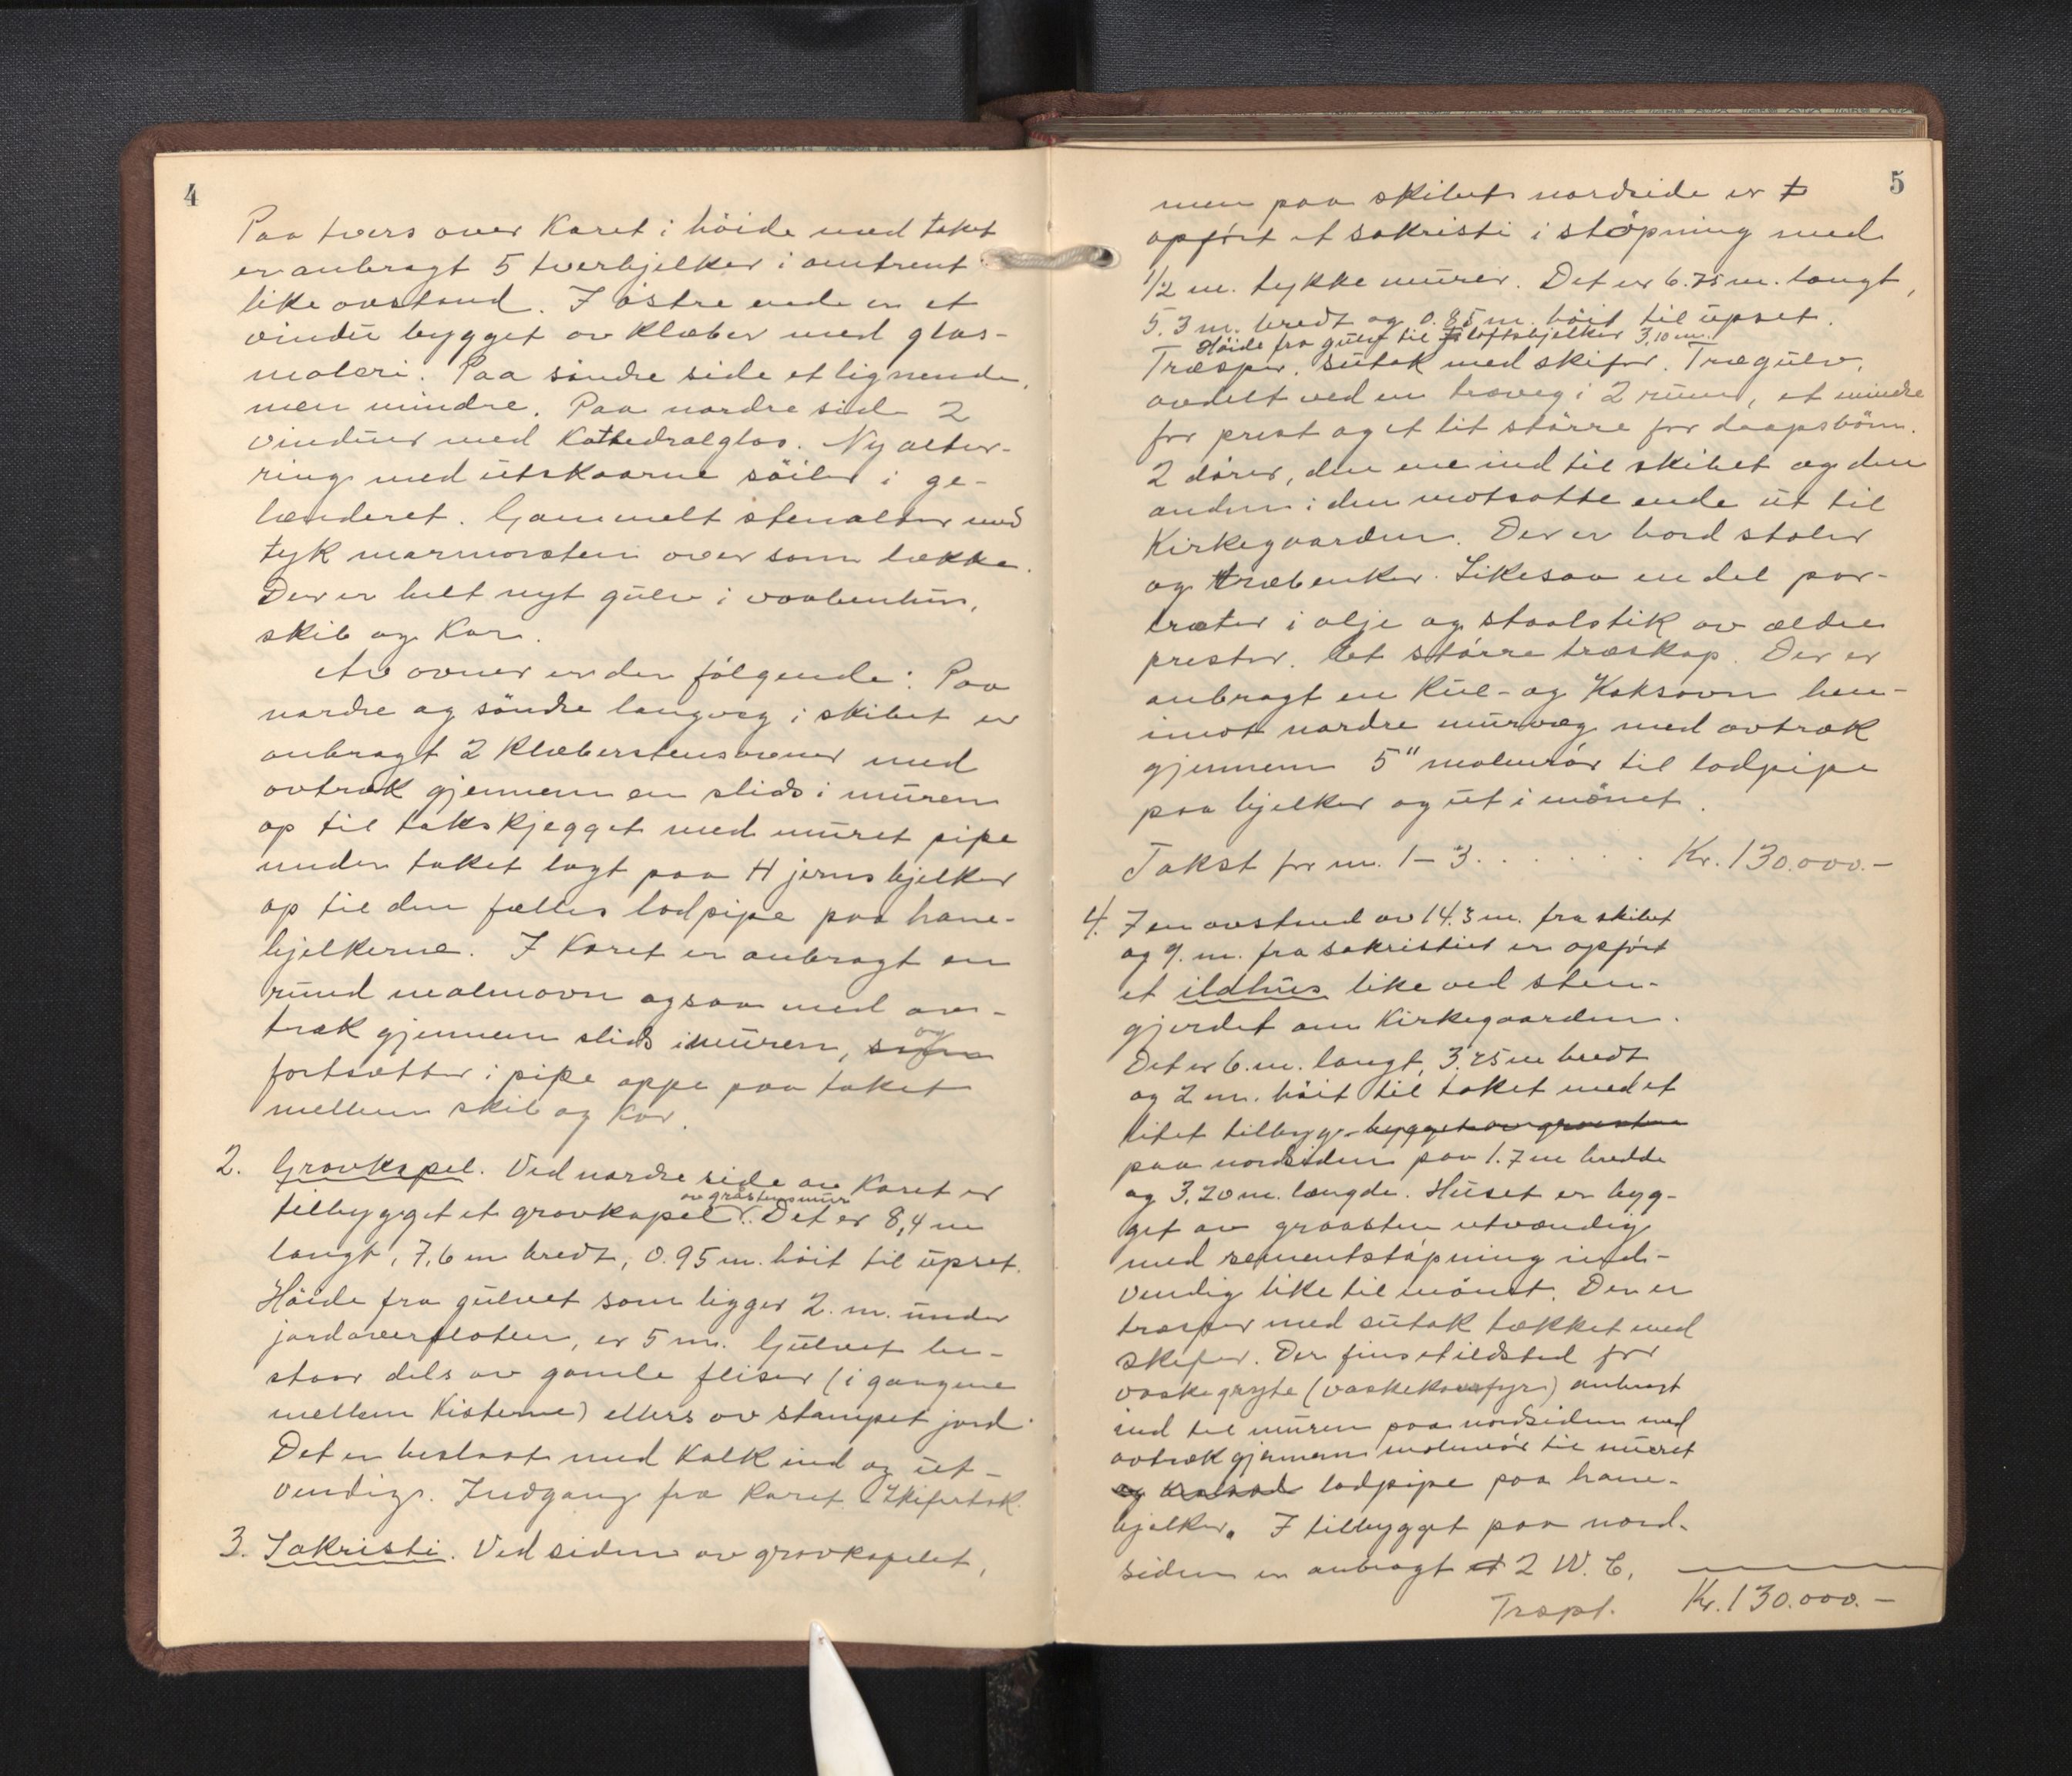 4
Paa tvers over Koret i höide med taket
er anbragt 5 tverbjelker i omtrent
like avstand. I östre ende er et
vindu bygget av Klæber med glas-
maleri. Paa söndre side et lignende,
men mindre. Paa nordre side 2
vinduer med Kathedralglas. Ny alter-
ring med utskaarne söiler i ge-
lænderet. Gammelt stenalter med
tyk marmorsten over som dække.
Der er helt nyt gulv i vaabenhus,
skib og Kor.
Av ovner er der fölgende: Paa
nordre og söndre langvæg i skibet er
anbragt 2 Klæberstensovner med
avtræk gjennem en slids i muren
op til takskjegget med muret pipe
under taket lagt paa H jernsbjelker
op til den fælles lodpipe paa hane-
bjelkerne. I Koret er anbragt en
rund malmovn ogsaa med av-
træk gjennem slids i muren, som og
fortsætter i pipe oppe paa taket
mellem skib og Kor.
2. Gravkapel. Ved nordre side av Koret er
tilbygget et gravkapel av gråstensmur. Det er 8,4 m
langt, 7,6 m bredt, 0.95 m. höit til upset.
Höide fra gulvet som ligger 2. m. under
jordoverflaten, er 5 m. Gulvet be-
staar dels av gamle fliser (i gangene
mellem Kisterne) ellers av stampet jord.
Det er beslaat med Kalk ind og ut-
vendig. Indgang fra Koret. Skifertak.
3. Sakristi. Ved siden av gravkapelet,
5
men paa skibets nordside er
opfört et sakristi i stöpning med
1/2 m. tykke murer. Det er 6.75 m. langt,
5.3 m. bredt og 0.85 m. höit til upset.
Höide fra gulv til loftsbjelker 3,10 m.
Træsper, sutak med skifer. Trægulv,
avdelt ved en trævæg i 2 rum, et mindre
for prest og et lit större for daapsbörn.
2 dörer, den ene ind til skibet og den
anden i den motsatte ende ut til
Kirkegaarden. Der er bord stoler
og træbenker. Likesaa en del por-
træter i olje og staalstik av ældre
prester. Et större træskap. Der er
anbragt en Kul- og Koksovn hen-
imot nordre murvæg med avtræk
gjennem 5" malmrör til lodpipe
paa bjelker og ut i mönet.
Takst for nr. 1-3. . . . . . . Kr. 130.000.-
4. I en avstand av 14.3 m. fra skibet
og 9. m. fra sakristiet er opfört
et ildhus like ved sten-
gjerdet om Kirkegaarden.
Det er 6. m. langt, 3.25 m bredt
og 2 m. höit til taket med et
litet tilbyg bygget av graasten
paa nordsiden paa 1.7 m bredde
og 3,20 m. længde. Huset er byg-
get av graasten utvændig
med sementstöpning ind-
vendig like til mönet. Der er
træsper med sutak tækket med
skifer. Der fins et ildsted for
vaskegryte (vaskekomfyr) anbragt
ind til muren paa nordsiden med
avtræk gjennem malmrör til muret
lodpipe paa hane-
bjelker. I tilbygget paa nord-
siden er anbragt 2 W. C.
Trspt. Kr. 130.000.-